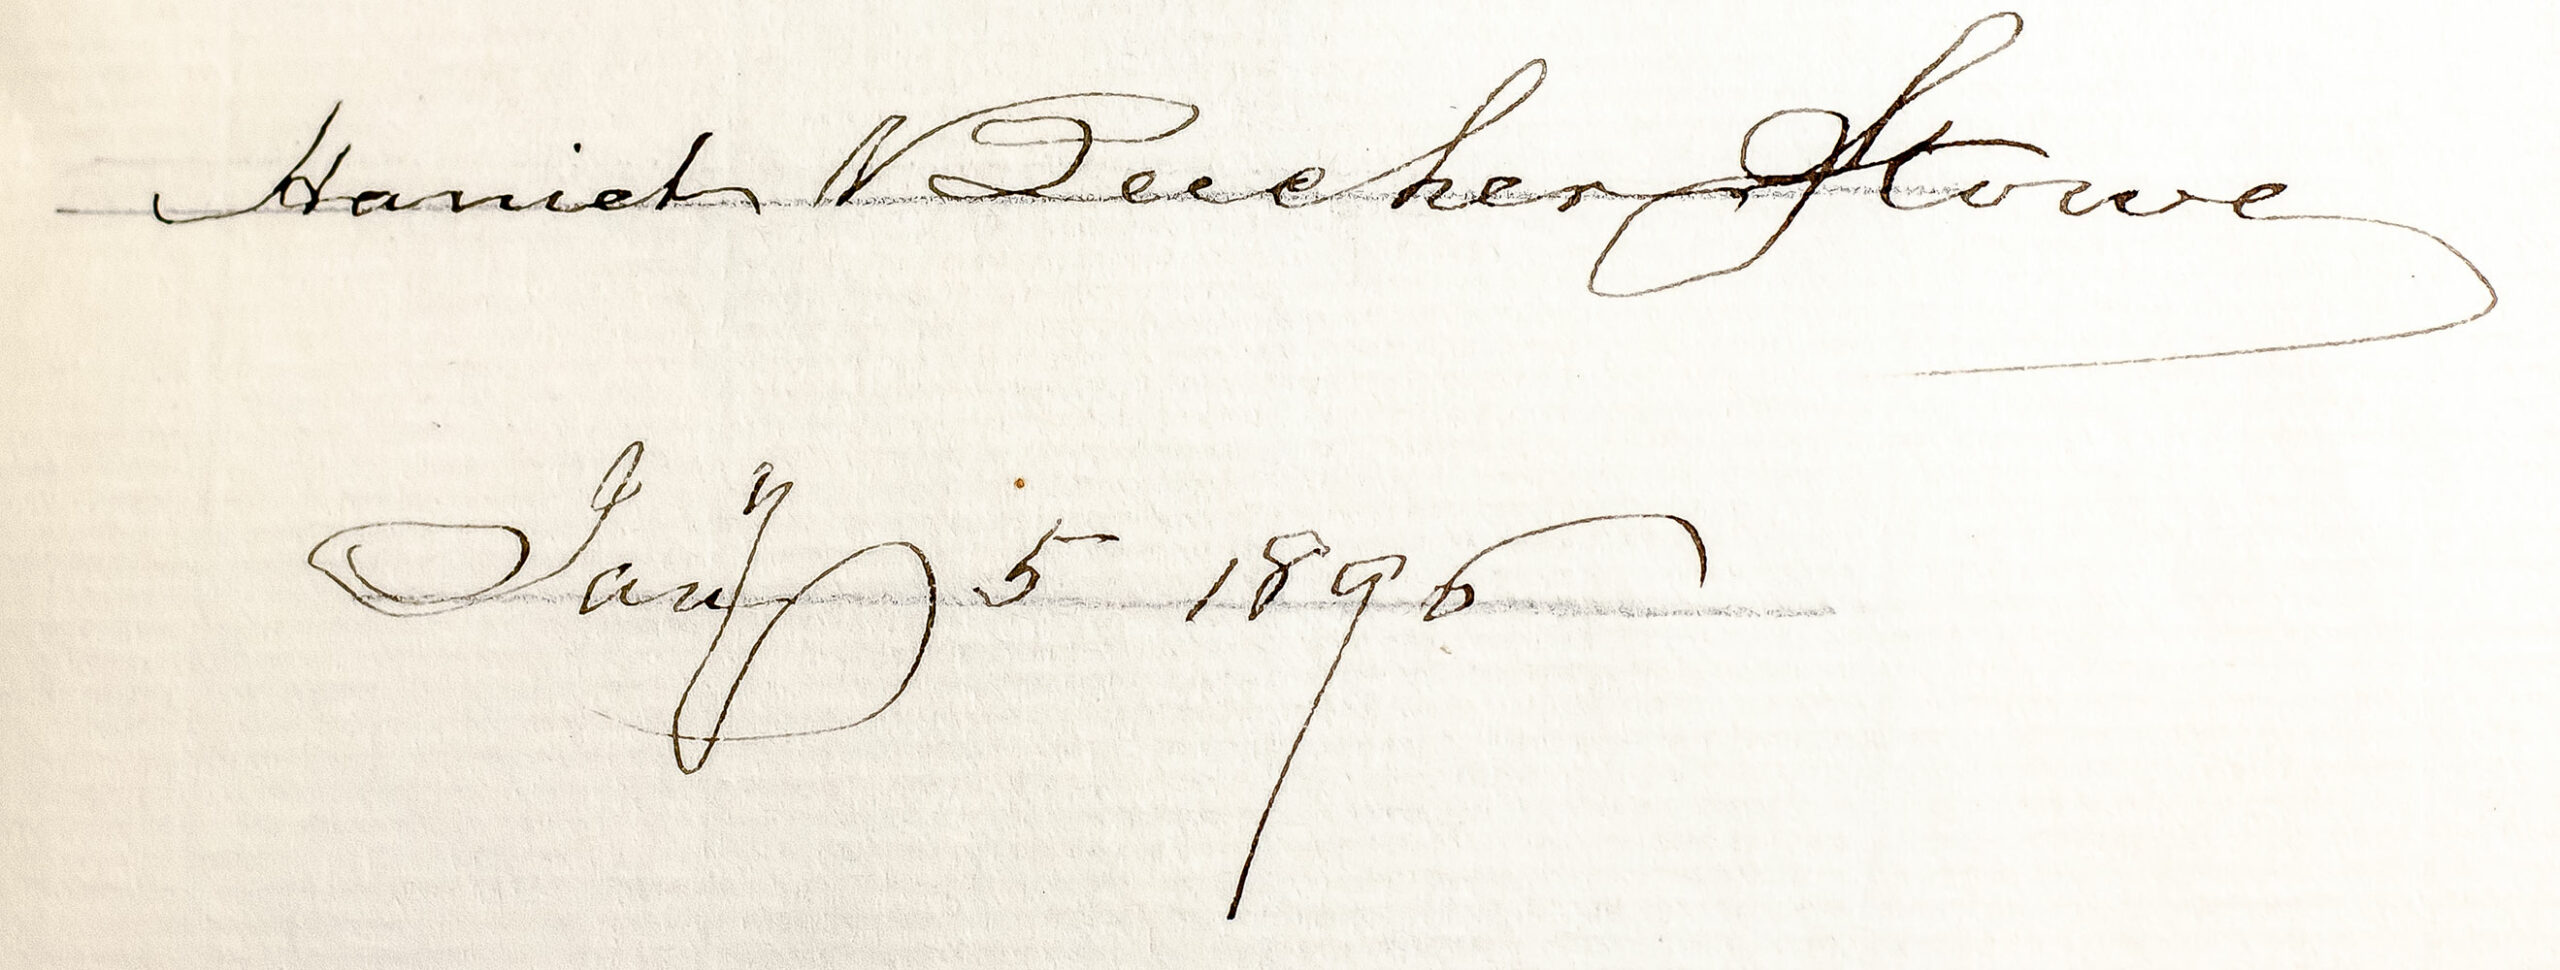 Harriet Beecher Stowe
Jany 5 1896